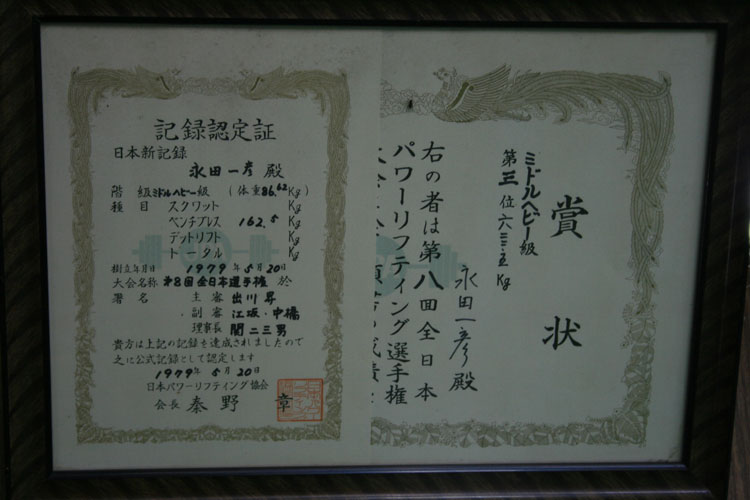 記録認定証
日本新記録
永田一彦 殿
階級 ミドルヘビー級 (体重86.62Kg)
種目 スクワット Kg
ベンチプレス 162.5 Kg
デットリフト Kg
トータル Kg
樹立年月日 1979年5月20日
大会名称 第8回全日本選手権 於
署名 主審 出川昇
副審 江坂・中橋
理事長 関二三男
貴方は上記の記録を達成されましたので
之に公式記録として認定します
1979年5月20日
日本パワーリフティング協会
会長 秦野 章
賞状
ミドルヘビー級
第三位 六三二・五Kg
永田一彦殿
右の者は第八回全日本
パワーリフティング選手権